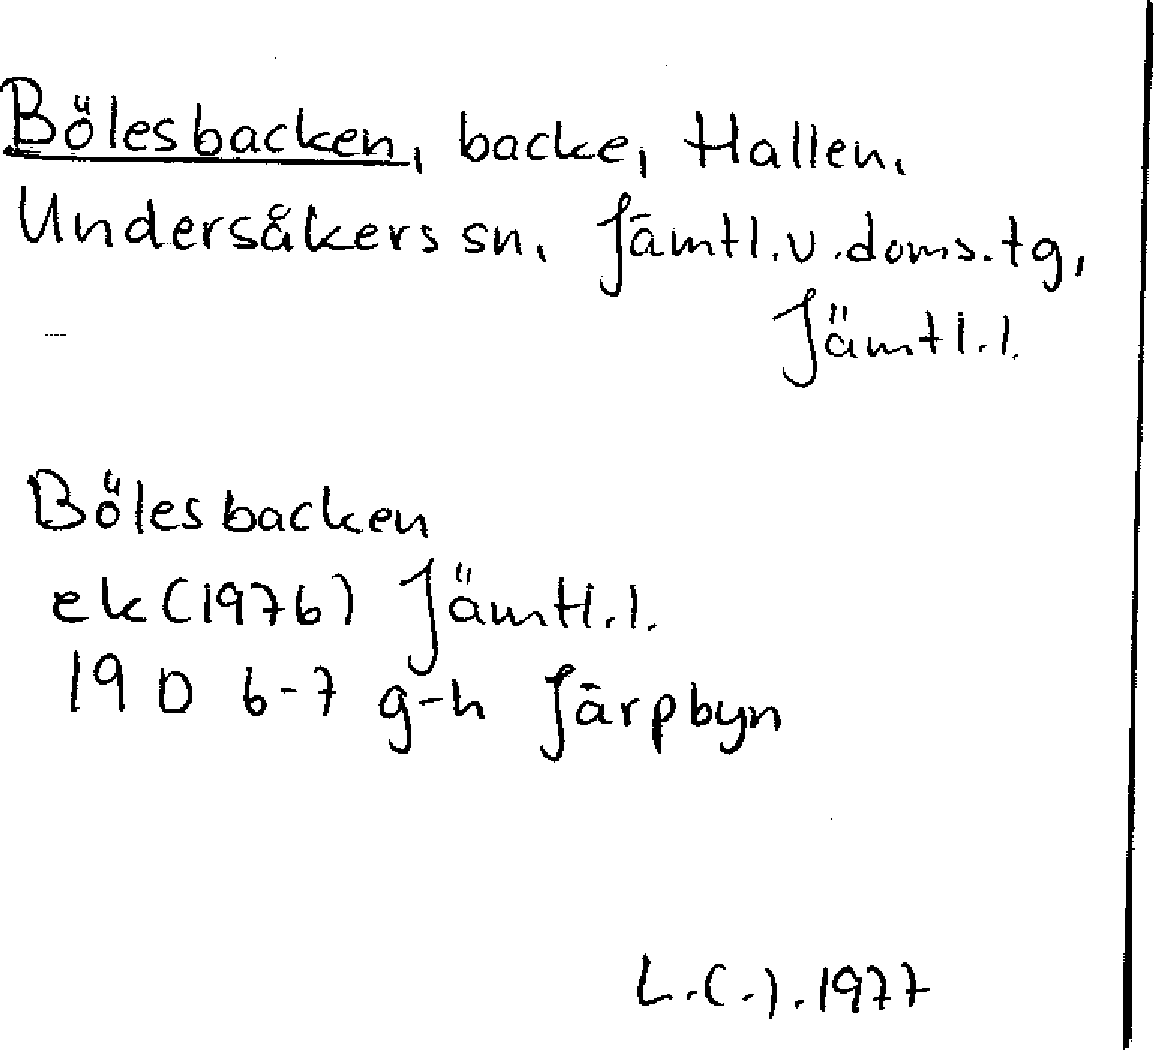 Bölesbacken, backe, Hallen,
Undersåkers sn, Jämtl.v.doms.tg,
Jämtl.l.
Bölesbacken
ek(1976) Jämtl.l.
19 D 6-7 g-h Järpbyn
L.(-).1977